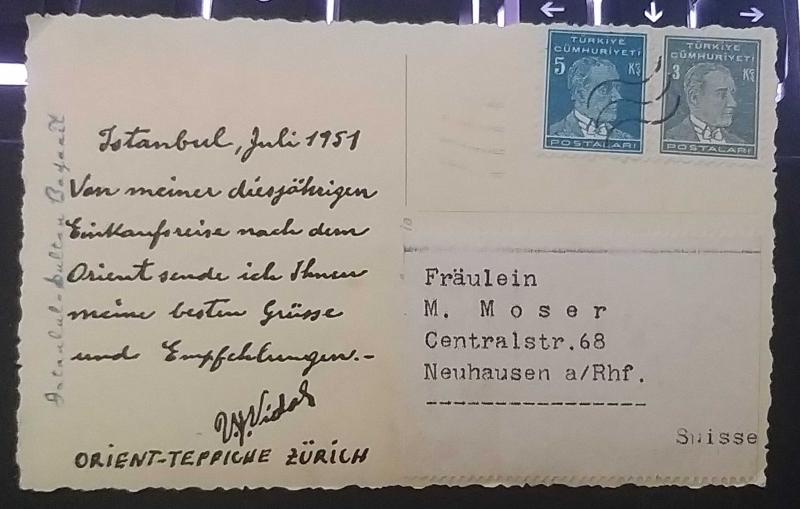 Istanbul, Juli 1951
Von meiner diesjährigen
Einkaufsreise nach dem
Orient sende ich Ihnen
meine besten Grüsse
und Empfehlungen.-
Vidal
ORIENT-TEPPICHE ZÜRICH
Istanbul-Sultan Bayazit
TÜRKİYE
CÜMHURİYETİ
5 Krş
POSTALARI
TÜRKİYE
CÜMHURİYETİ
3 Krş
POSTALARI
Fräulein
M. Moser
Centralstr.68
Neuhausen a/Rhf.
Suisse